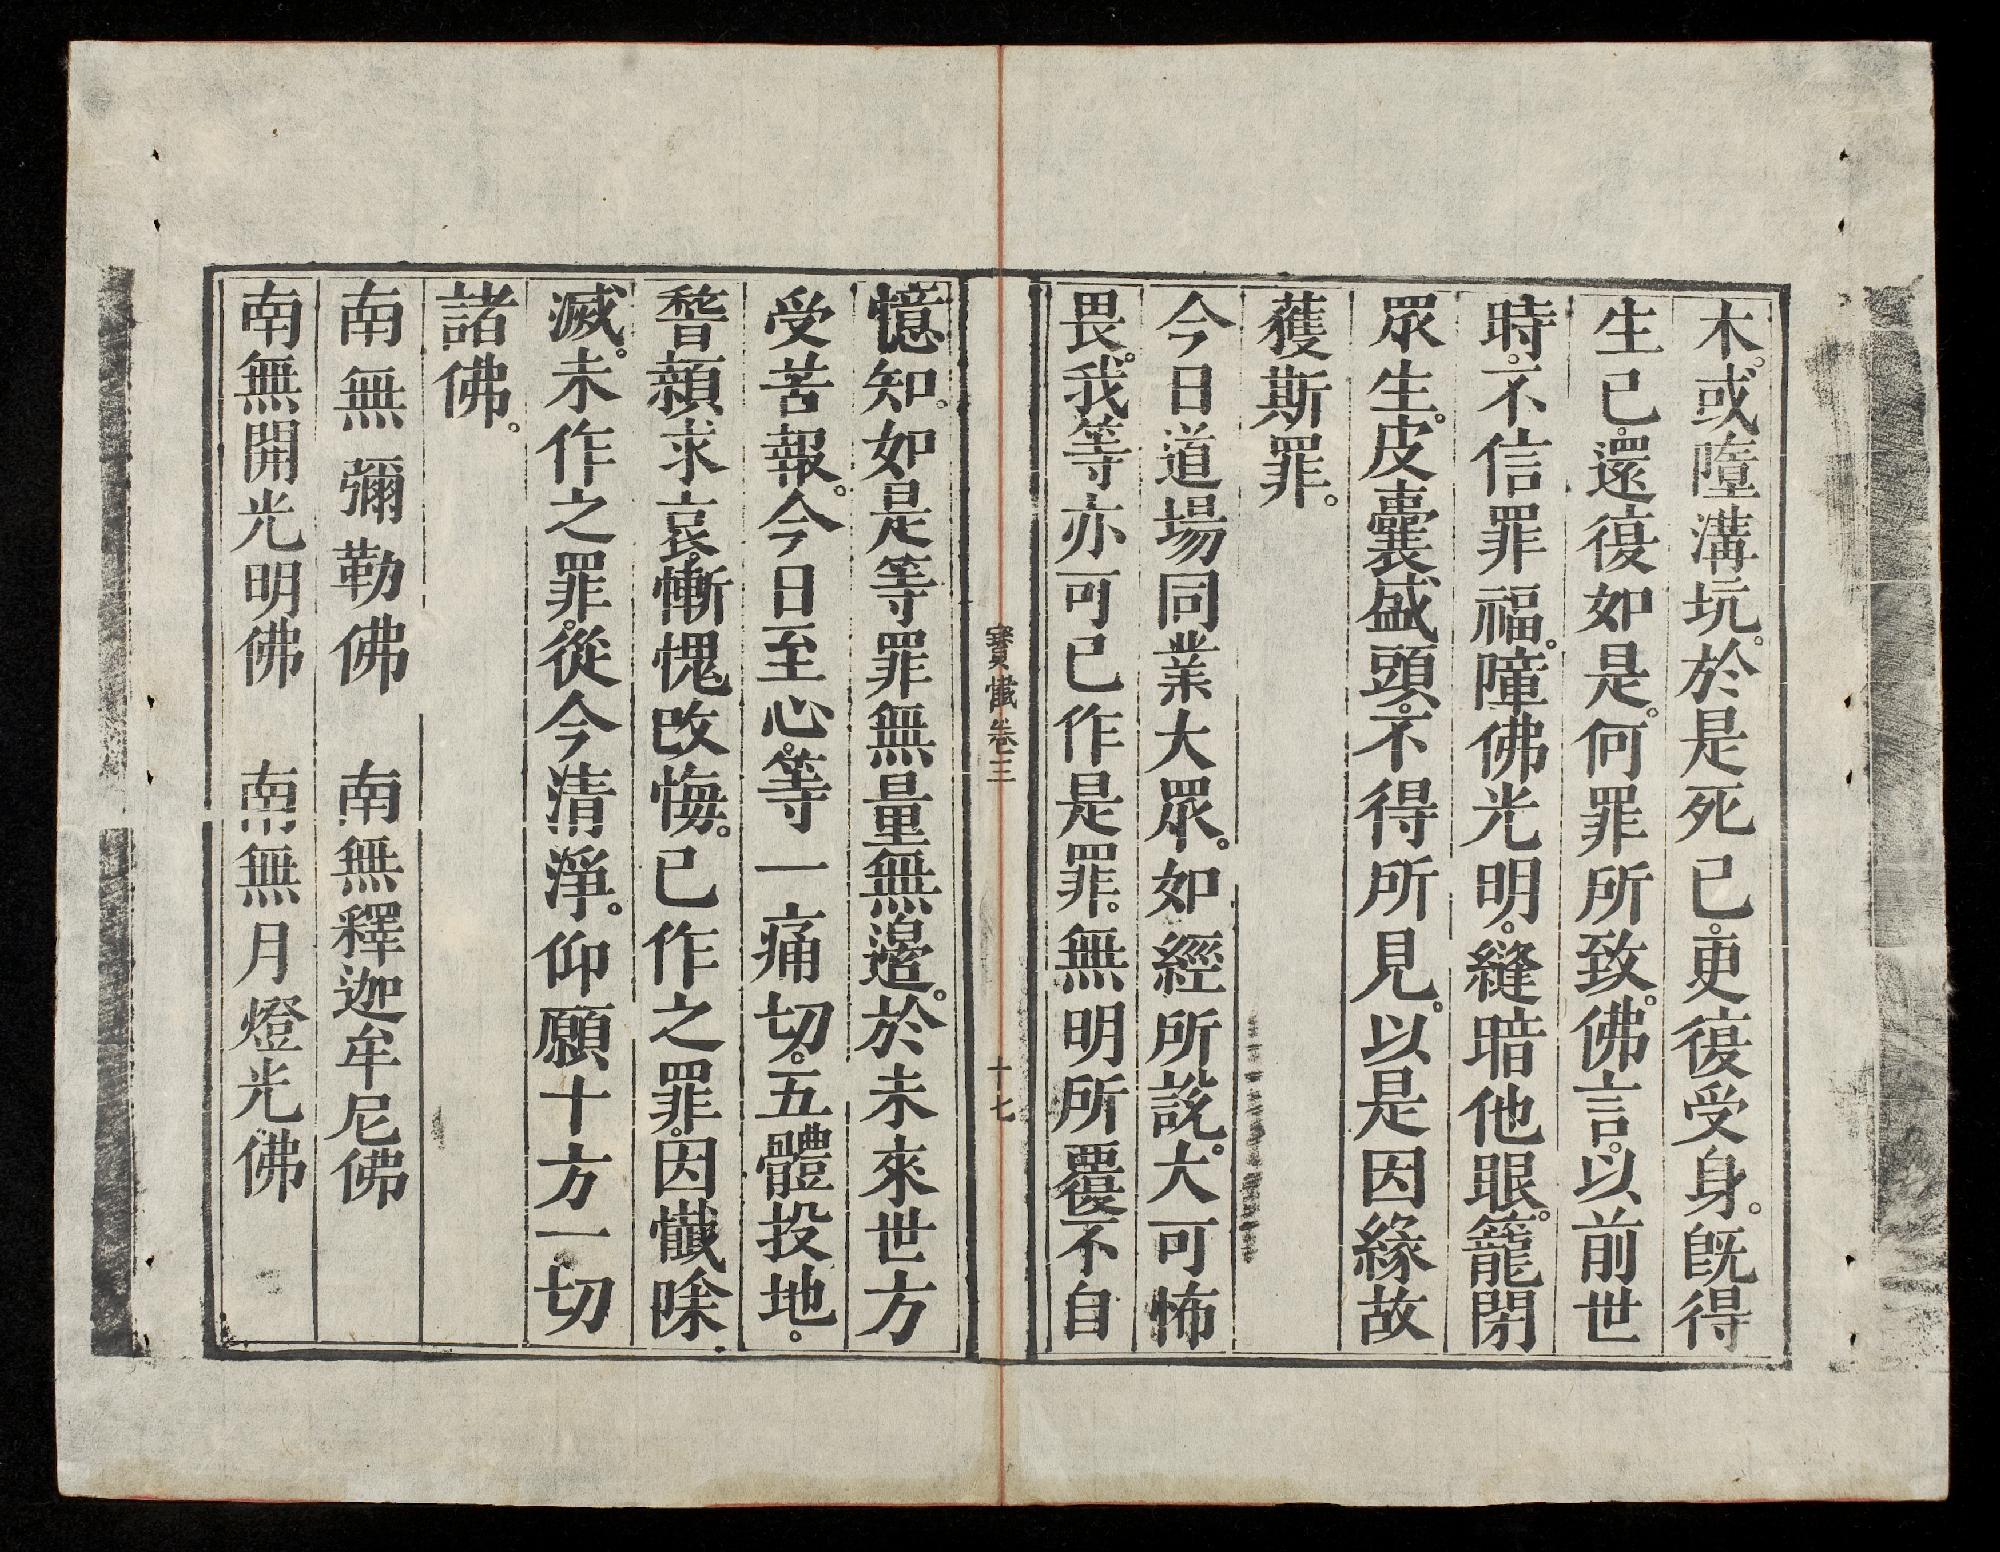 木。或墮溝坑。於是死已。更復受身。旣得
生已。還復如是。何罪所致。佛言。以前世
時。不信罪福。障佛光明。縫暗他眼。籠閉
眾生。皮囊盛頭。不得所見。以是因緣故
獲斯罪。
今日道場同業大眾。如經所說。大可怖
畏。我等亦可已作是罪。無明所覆不自
寶懺卷三 十七
憶知。如是等罪無量無邊。於未來世方
受苦報。今日至心。等一痛切。五體投地。
稽顙求哀。慚愧改悔。已作之罪。因懺除
滅。未作之罪。從今清淨。仰願十方一切
諸佛。
南無彌勒佛 南無釋迦牟尼佛
南無開光明佛 南無月燈光佛